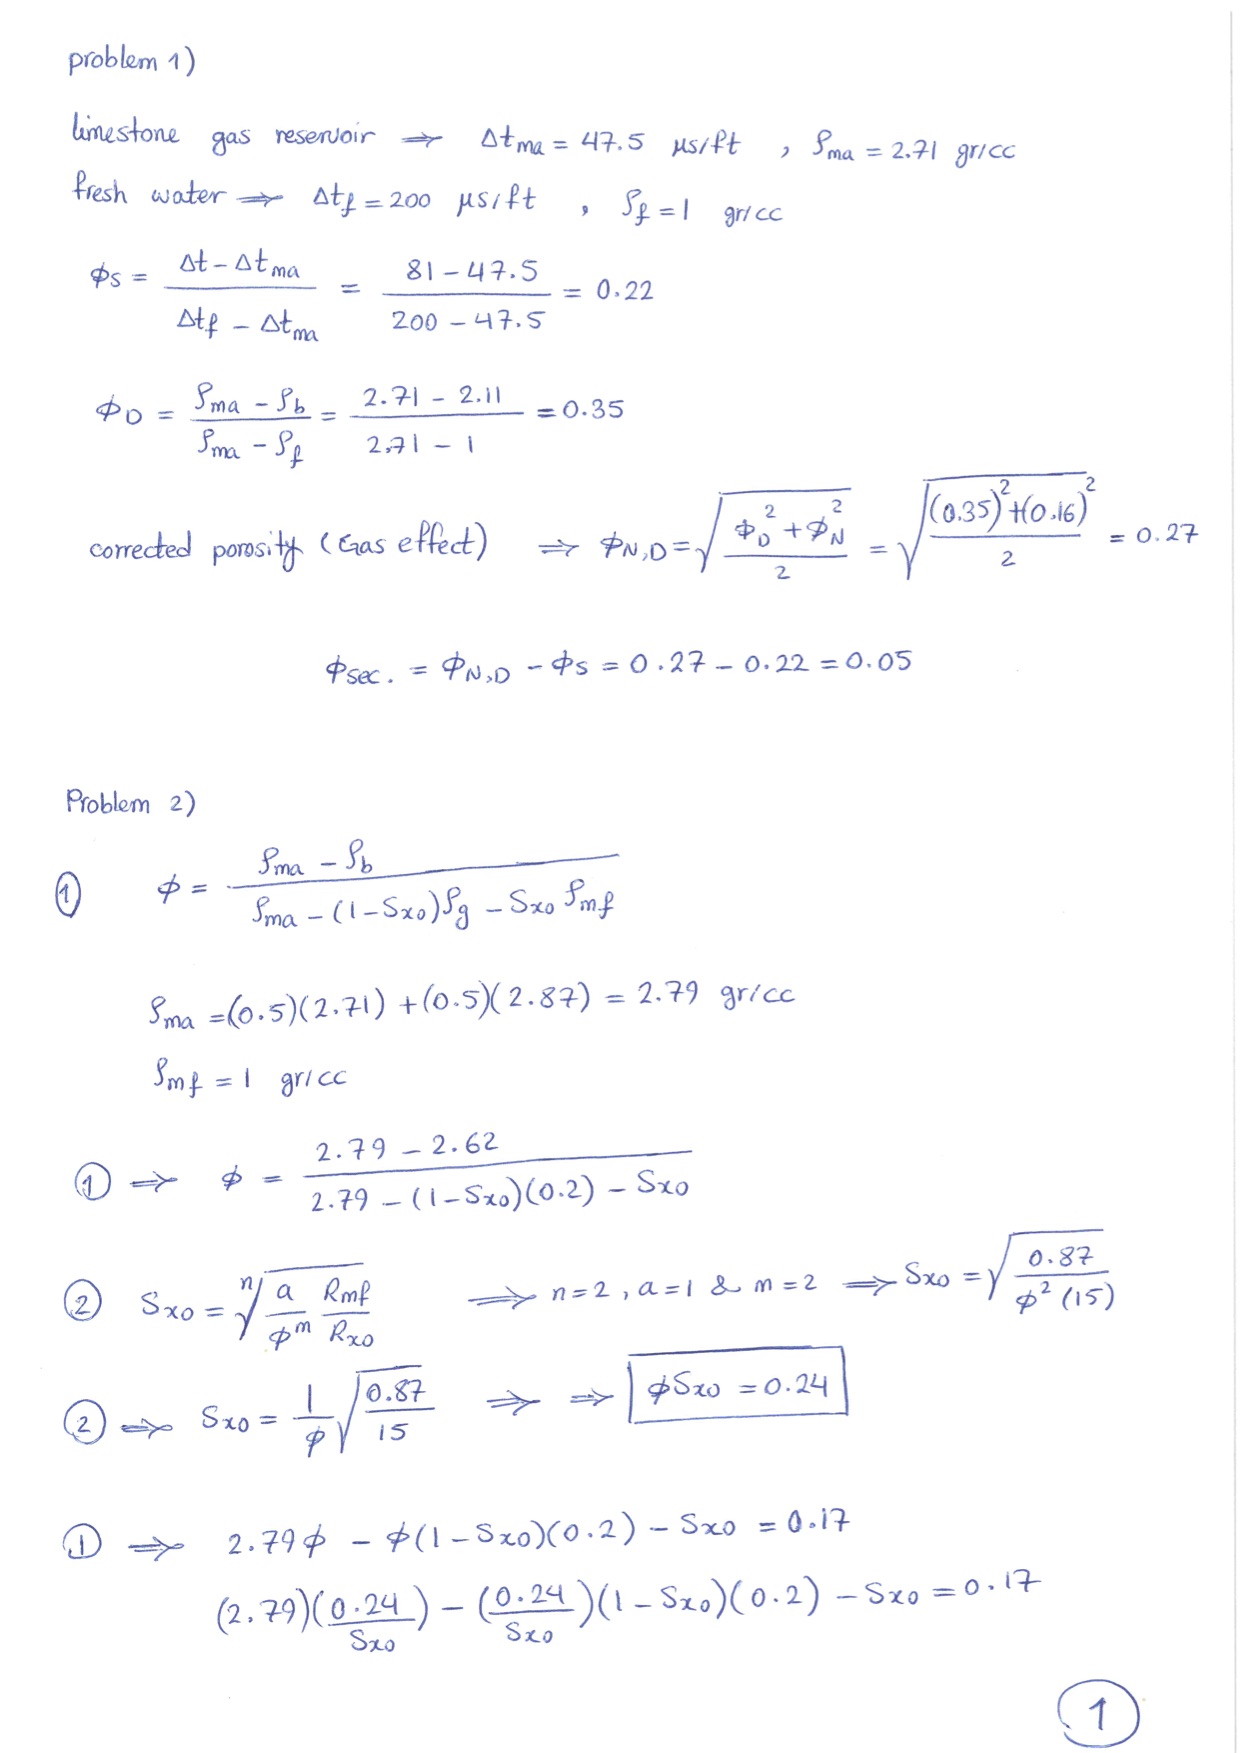 problem 1)
limestone gas reservoir ⇒ Δt_ma = 47.5 μs/ft , ρ_ma = 2.71 gr/cc
fresh water ⇒ Δt_f = 200 μs/ft , ρ_f = 1 gr/cc
φ_S = (Δt − Δt_ma) / (Δt_f − Δt_ma) = (81 − 47.5) / (200 − 47.5) = 0.22
φ_D = (ρ_ma − ρ_b) / (ρ_ma − ρ_f) = (2.71 − 2.11) / (2.71 − 1) = 0.35
corrected porosity (Gas effect) ⇒ φ_N,D = √((φ_D² + φ_N²) / 2) = √(((0.35)² + (0.16)²) / 2) = 0.27
φ_sec. = φ_N,D − φ_S = 0.27 − 0.22 = 0.05
Problem 2)
① φ = (ρ_ma − ρ_b) / (ρ_ma − (1 − S_xo)ρ_g − S_xo ρ_mf)
ρ_ma = (0.5)(2.71) + (0.5)(2.87) = 2.79 gr/cc
ρ_mf = 1 gr/cc
① ⇒ φ = (2.79 − 2.62) / (2.79 − (1 − S_xo)(0.2) − S_xo)
② S_xo = ⁿ√((a / φ^m) (R_mf / R_xo)) ⇒ n = 2 , a = 1 & m = 2 ⇒ S_xo = √(0.87 / (φ² (15)))
② ⇒ S_xo = (1 / φ) √(0.87 / 15) ⇒ ⇒ φS_xo = 0.24
① ⇒ 2.79φ − φ(1 − S_xo)(0.2) − S_xo = 0.17
(2.79)(0.24 / S_xo) − (0.24 / S_xo)(1 − S_xo)(0.2) − S_xo = 0.17
1